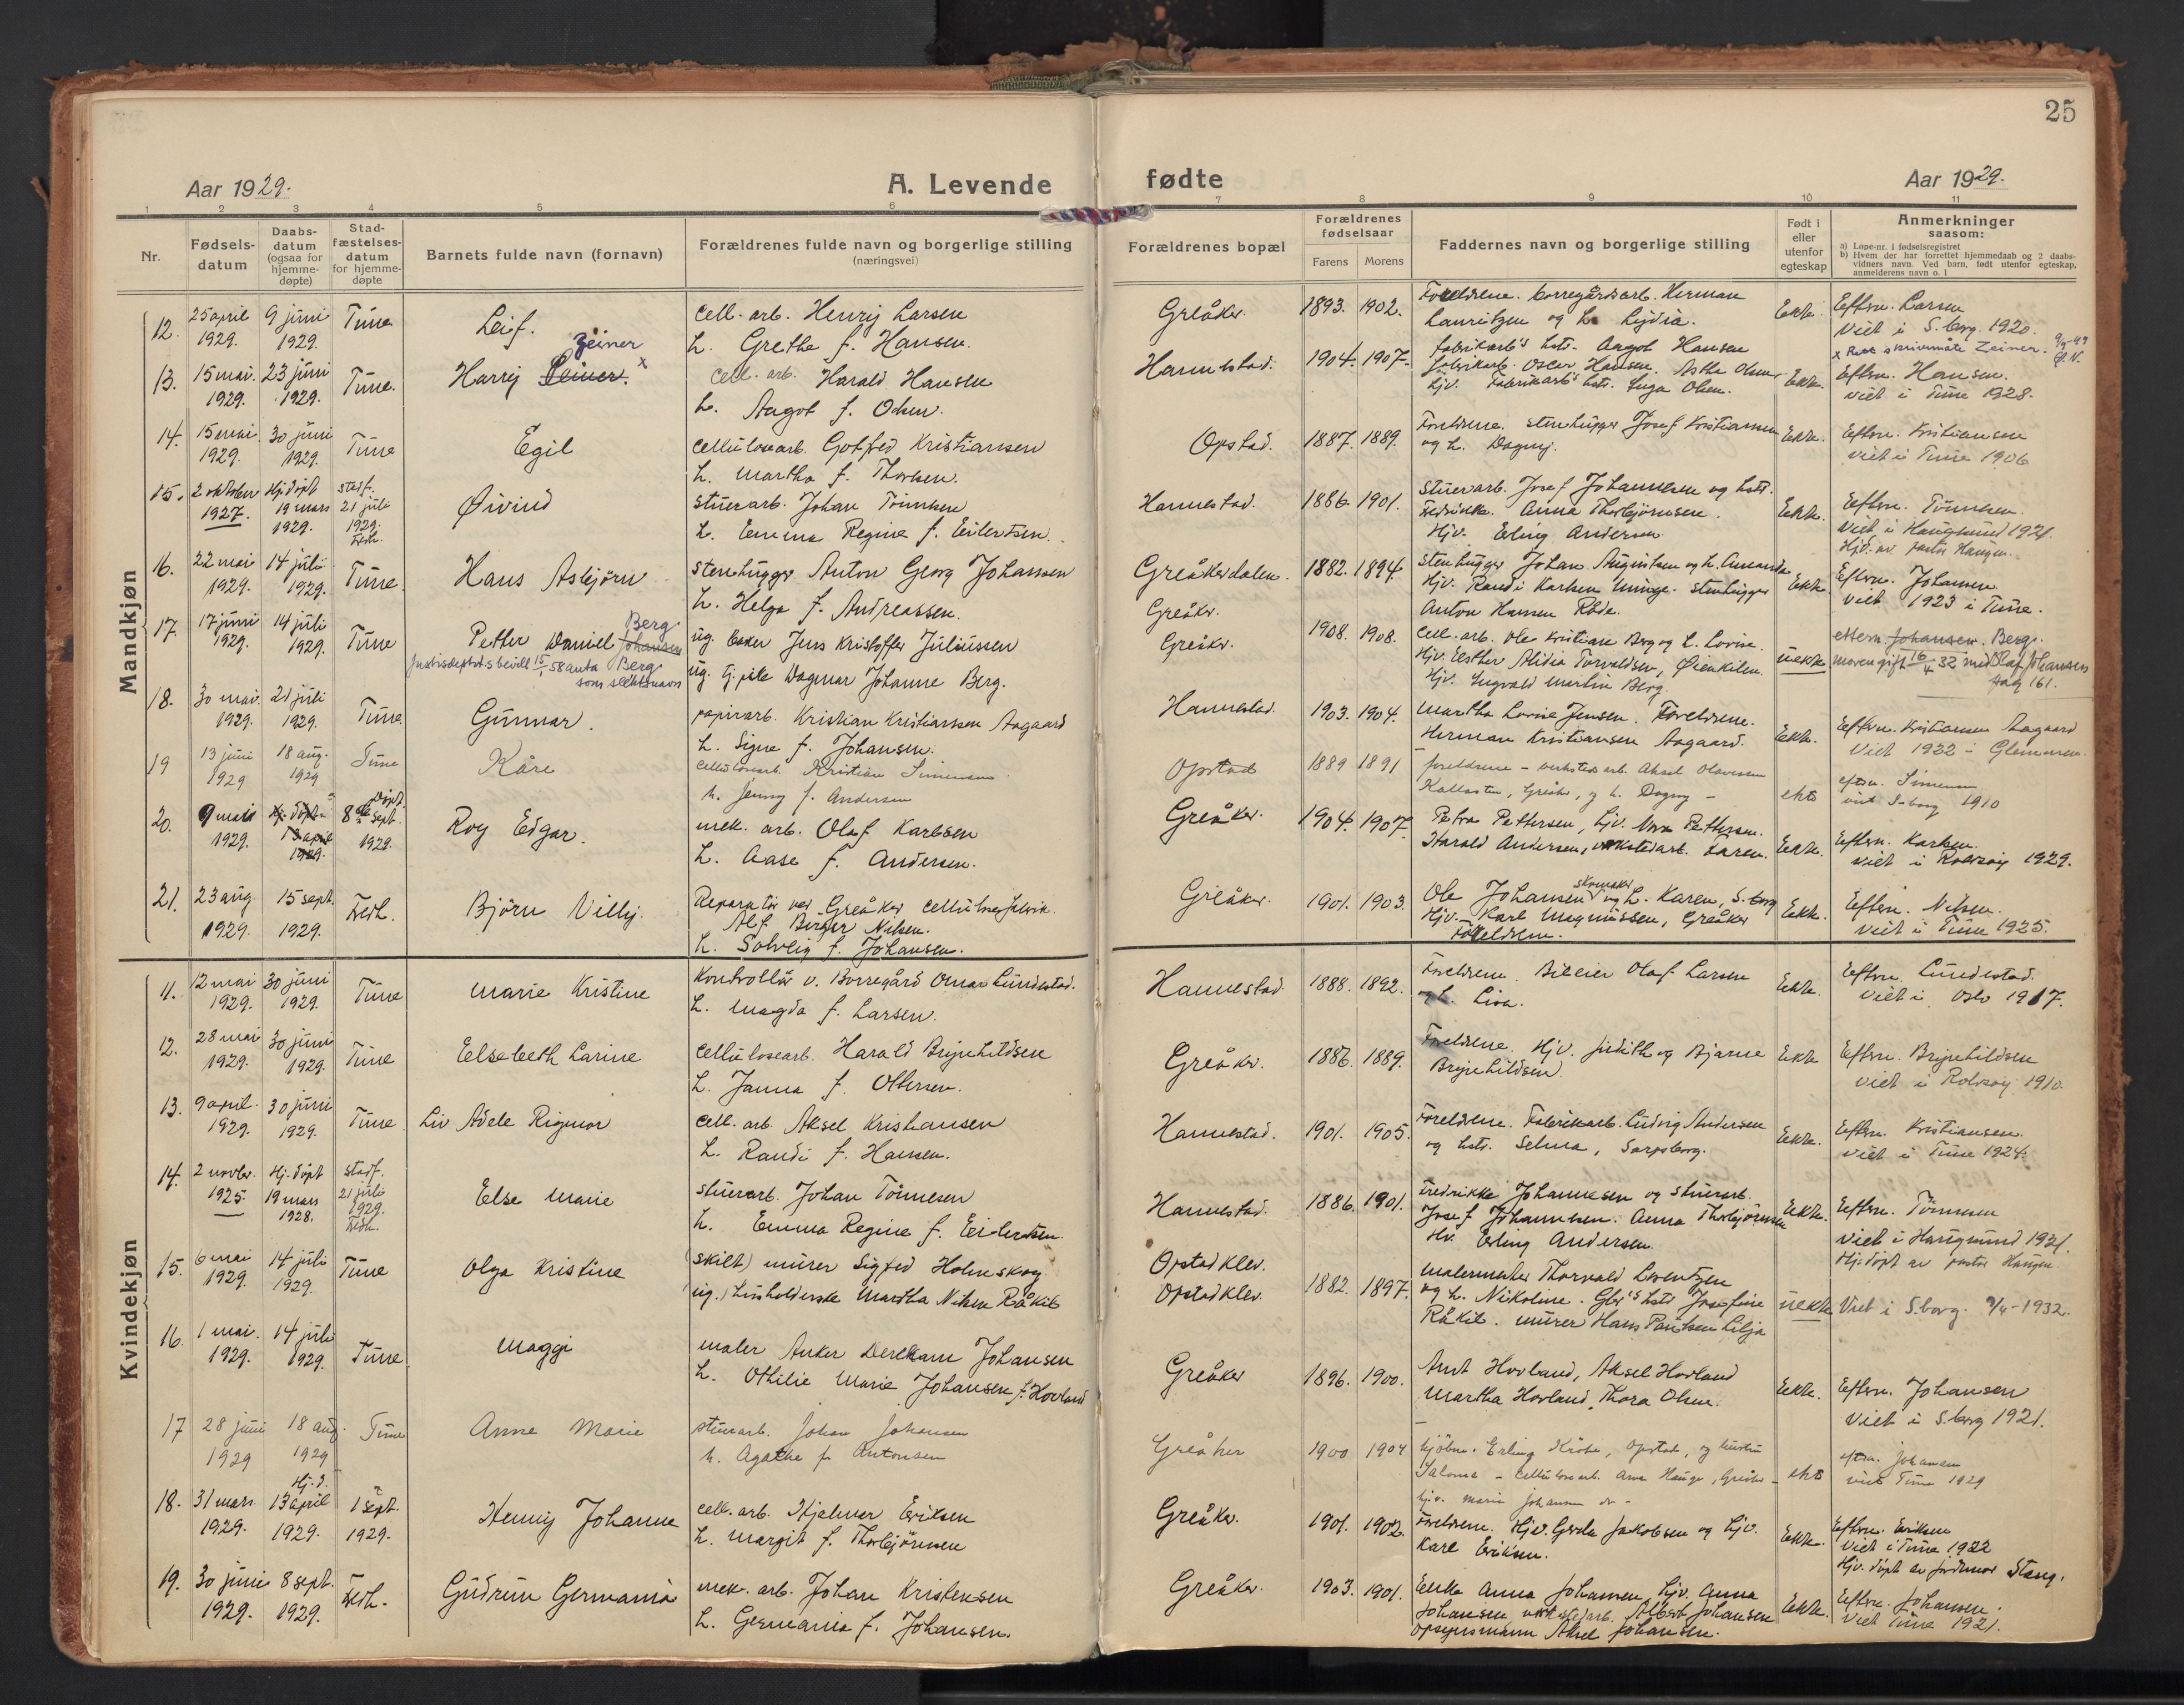 25
Aar 1929.
A. Levende
fødte
Aar 1929.
1 2 3 4 5 6 7 8 9 10 11
Nr.
Fødsels-
datum
Daabs-
datum
(ogsaa for
hjemme-
døpte)
Stad-
fæstelses-
datum
for hjemme-
døpte
Barnets fulde navn (fornavn)
Forældrenes fulde navn og borgerlige stilling
(næringsvei)
Forældrenes bopæl
Forældrenes
fødselsaar
Farens
Morens
Faddernes navn og borgerlige stilling
Født i
eller
utenfor
egteskap
Anmerkninger
saasom:
a) Løpe-nr. i fødselsregistret
b) Hvem der har forrettet hjemmedaab og 2 daabs-
vidners navn. Ved barn, født utenfor egteskap,
anmelderens navn o. l
Mandkjøn
12. 25 april 1929. 9 juni 1929. Tune Leif.
cell-arb. Henry Larsen
h. Grethe f. Hansen.
Greåker. 1893. 1902.
Foreldrene. borregårdsarb. Herman
Lauritzen og h. Lydia.
Ekte. Eftern. Larsen
Viet i S.borg. 1920.
13. 15 mai. 1929. 23 juni 1929. Tune. Harry Zeiner x
cell. arb. Harald Hansen
h. Aagot f. Olsen.
Hannestad. 1904. 1907.
fabrikarb's hstr. Aagot Hansen
fabrikarb. Oscar Hansen. Astha Olsen,
hjv. Fabrikarb's hstr. Inga Olsen.
Ekte. x Rett skrivemåte Zeiner.
Eftern. Hansen.
viet i Tune 1928.
14. 15 mai 1929. 30 juni 1929. Tune Egil
cellulosearb. Gotfred Kristiansen
h. Martha f. Thorsen.
Opstad. 1887. 1889.
Foreldrene. Stenhugger Josef Kristiansen
og h. Dagny.
Ekte. Eftern. Kristiansen
viet i Tune 1906
15. 2 oktober 1927. Hj.døpt 19 mars 1929. stadf. 21 juli 1929. Fredr. Øivind
stuerarb. Johan Tønnesen
h. Emma Regine f. Eilertsen.
Hannestad. 1886. 1901.
Stuerarb. Josef Johannesen og hstr.
Fredrikke. Anna Thorbjørnsen.
Hjv. Erling Andersen.
Ekte. Eftern. Tønnesen.
Viet i Haugesund 1921.
Hjd. av pastor Haugen.
16. 22 mai 1929. 14 juli 1929. Tune. Hans Asbjørn
Stenhugger Anton Georg Johansen
h. Helga f. Andreassen.
Greåkerdalen. 1882. 1894.
Stenhugger Johan Augustsen og h. Amanda
Hjv. Randi Karlsen Uninge. Stenhugger
Anton Hansen Råde.
Ekte. Eftern. Johansen
Viet 1923 i Tune.
17. 17 juni 1929. 14 juli 1929. Tune Petter Daniell Johansen Berg
Justisdeptets bevill 15/1 58 anta Berg
som slektsnavn
ug. baker Jens Kristoffer Juliussen
ug. tj.pike Dagmar Johanne Berg.
Greåker.
Greåker. 1908. 1908.
Cell-arb. Ole Kristian Berg og h. Lovise.
Hjv. Esther Alidia Torvaldsen, Øienkilen.
Hjv. Ingvald Martin Berg.
uekte eftern. Johansen. Berg.
moren gift 16/4 32 med Olaf Johansen
pag 161.
18. 30 mai. 1929. 21 juli 1929. Tune Gunnar.
papirarb. Kristian Kristiansen Aagaard
h. Signe f. Johansen.
Hannestad. 1903. 1904.
Martha Lovise Jensen. Foreldrene.
Herman Kristiansen Aagaard.
Ekte. Eftern. Kristiansen Aagaard
Viet 1922 i Glemmen.
19 13 juni 1929 18 aug. 1929 Tune Kåre
cellulosearb. Kristian Simensen
h. Jenny f. Andersen
Opstad 1889 1891
foreldrene - verkstedarb. Aksel Olavesen
Greåker, og h. Dagny -
ekte eftern. Simensen
viet S-borg 1910
20. 9 mars 1929. Hj. døpt 13 april 1929. døpt 8 sept. 1929. Roy Edgar.
mek. arb. Olaf Karlsen
h. Aase f. Andersen.
Greåker. 1904. 1907.
Petra Pettersen, hjv. Nora Pettersen.
Harald Andersen, verkstedarb. Faren.
Ekte. Eftern. Karlsen.
viet i Rolvsøy 1929.
21. 23 aug. 1929. 15 sept. 1929. Fredr. Bjørn Villy.
Reparatør ved Greåker cellulosefabrik
Alf Birger Nilsen.
h. Solveig f. Johansen.
Greåker. 1901. 1903.
Ole Johansen skomaker og h. Karen, S.borg
Hjv. Karl Magnussen, Greåker
Foreldrene.
Ekte. Eftern. Nilsen.
Viet i Tune 1925.
Kvindekjøn
11. 12 mai 1929. 30 juni 1929. Tune Marie Kristine
Kontrollør v. Borregård Omar Lundestad.
h. Magda f. Larsen.
Hannestad 1888. 1892.
Foreldrene. Bileier Olaf Larsen
og h. Lisa.
Ekte. Eftern. Lundestad.
Viet i Oslo 1917.
12. 28 mai 1929. 30 juni 1929. Tune Elsebeth Larine
cellulosearb. Harald Brynhildsen
h. Janna f. Ottersen.
Greåker. 1886. 1889.
Foreldrene. Hjv. Judith og Bjarne
Brynhildsen.
Ekte Eftern. Brynhildsen
viet i Rolvsøy 1910.
13. 9 april. 1929. 30 juni 1929. Tune. Liv Adele Rigmor
cell. arb. Aksel Kristiansen
h. Randi f. Hansen.
Hannestad. 1901. 1905.
Foreldrene. Fabrikarb. Ludvig Andersen
og hstr. Selma, Sarpsborg.
Ekte. Eftern. Kristiansen.
viet i Tune 1924.
14. 2 novbr. 1925. Hj. døpt 19 mars 1928. stadf. 21 juli 1929. Fredr. Else Marie
stuerarb. Johan Tønnesen
h. Emma Regine f. Eilertsen.
Hannestad. 1886. 1901.
Fredrikke Johannesen og stuerarb.
Josef Johannesen. Anna Thorbjørnsen
Hv. Erling Andersen.
Ekte. Eftern. Tønnesen
viet i Haugesund 1921.
Hj.døpt av pastor Haugen.
15. 6 mai 1929. 14 juli 1929. Tune Olga Kristine
(skilt) murer Sigfred Holmeskog
(ug.) husholderske Martha Nilsen Råkil
Opstadklev.
Opstadklev. 1882. 1897.
Malermester Thorvald Lorentzen
og h. Nikoline. Gbr's hstr Josefine
Råkil. murer Hans Paulsen Lilja
uekte Viet i S.borg. 9/4-1932.
16. 1 mai. 1929. 14 juli 1929. Tune Maggi
maler Anker Johansen
h. Othilie Marie Johansen f. Hovland
Greåker 1896. 1900.
Arnt Hovland, Aksel Hovland
Martha Hovland, Thora Olsen.
Ekte. Eftern. Johansen
Viet i S.borg 1921.
17 28 juni 1929 18 aug. 1929 Tune Anne Marie
stuerarb. Johan Johansen
h. Agathe f. Antonsen
Greåker 1900 1904
Erling Opstad, og hustru
Salome - cellulosearb. Arne Hauge, Greåker -
hjv. Marie Johansen do -
ekte eftern. Johansen
viet Tune 1929
18. 31 mars. 1929. Hj.d. 13 april 1929. 1 sept. 1929. Henny Johanne
cell.-arb. Hjalmar Eriksen
h. Margit f. Thorbjørnsen
Greåker. 1901. 1902.
Foreldrene. Hjv. Gerda Jakobsen og hjv.
Karl Eriksen.
Ekte. Eftern. Eriksen
Viet i Tune 1922
Hj. døpt av jordmor Stang.
19. 30 juni 1929. 8 sept. 1929. Fredr. Gudrun Germania
mek. arb. Johan Kristensen
h. Germania f. Johansen.
Greåker. 1903. 1901.
Enke Anna Johansen, hjv. Anna
Johansen verkstedarb. Albert Johansen
opsynsmann Aksel Johansen.
Ekte. Eftern. Johansen.
Viet Tune 1921.